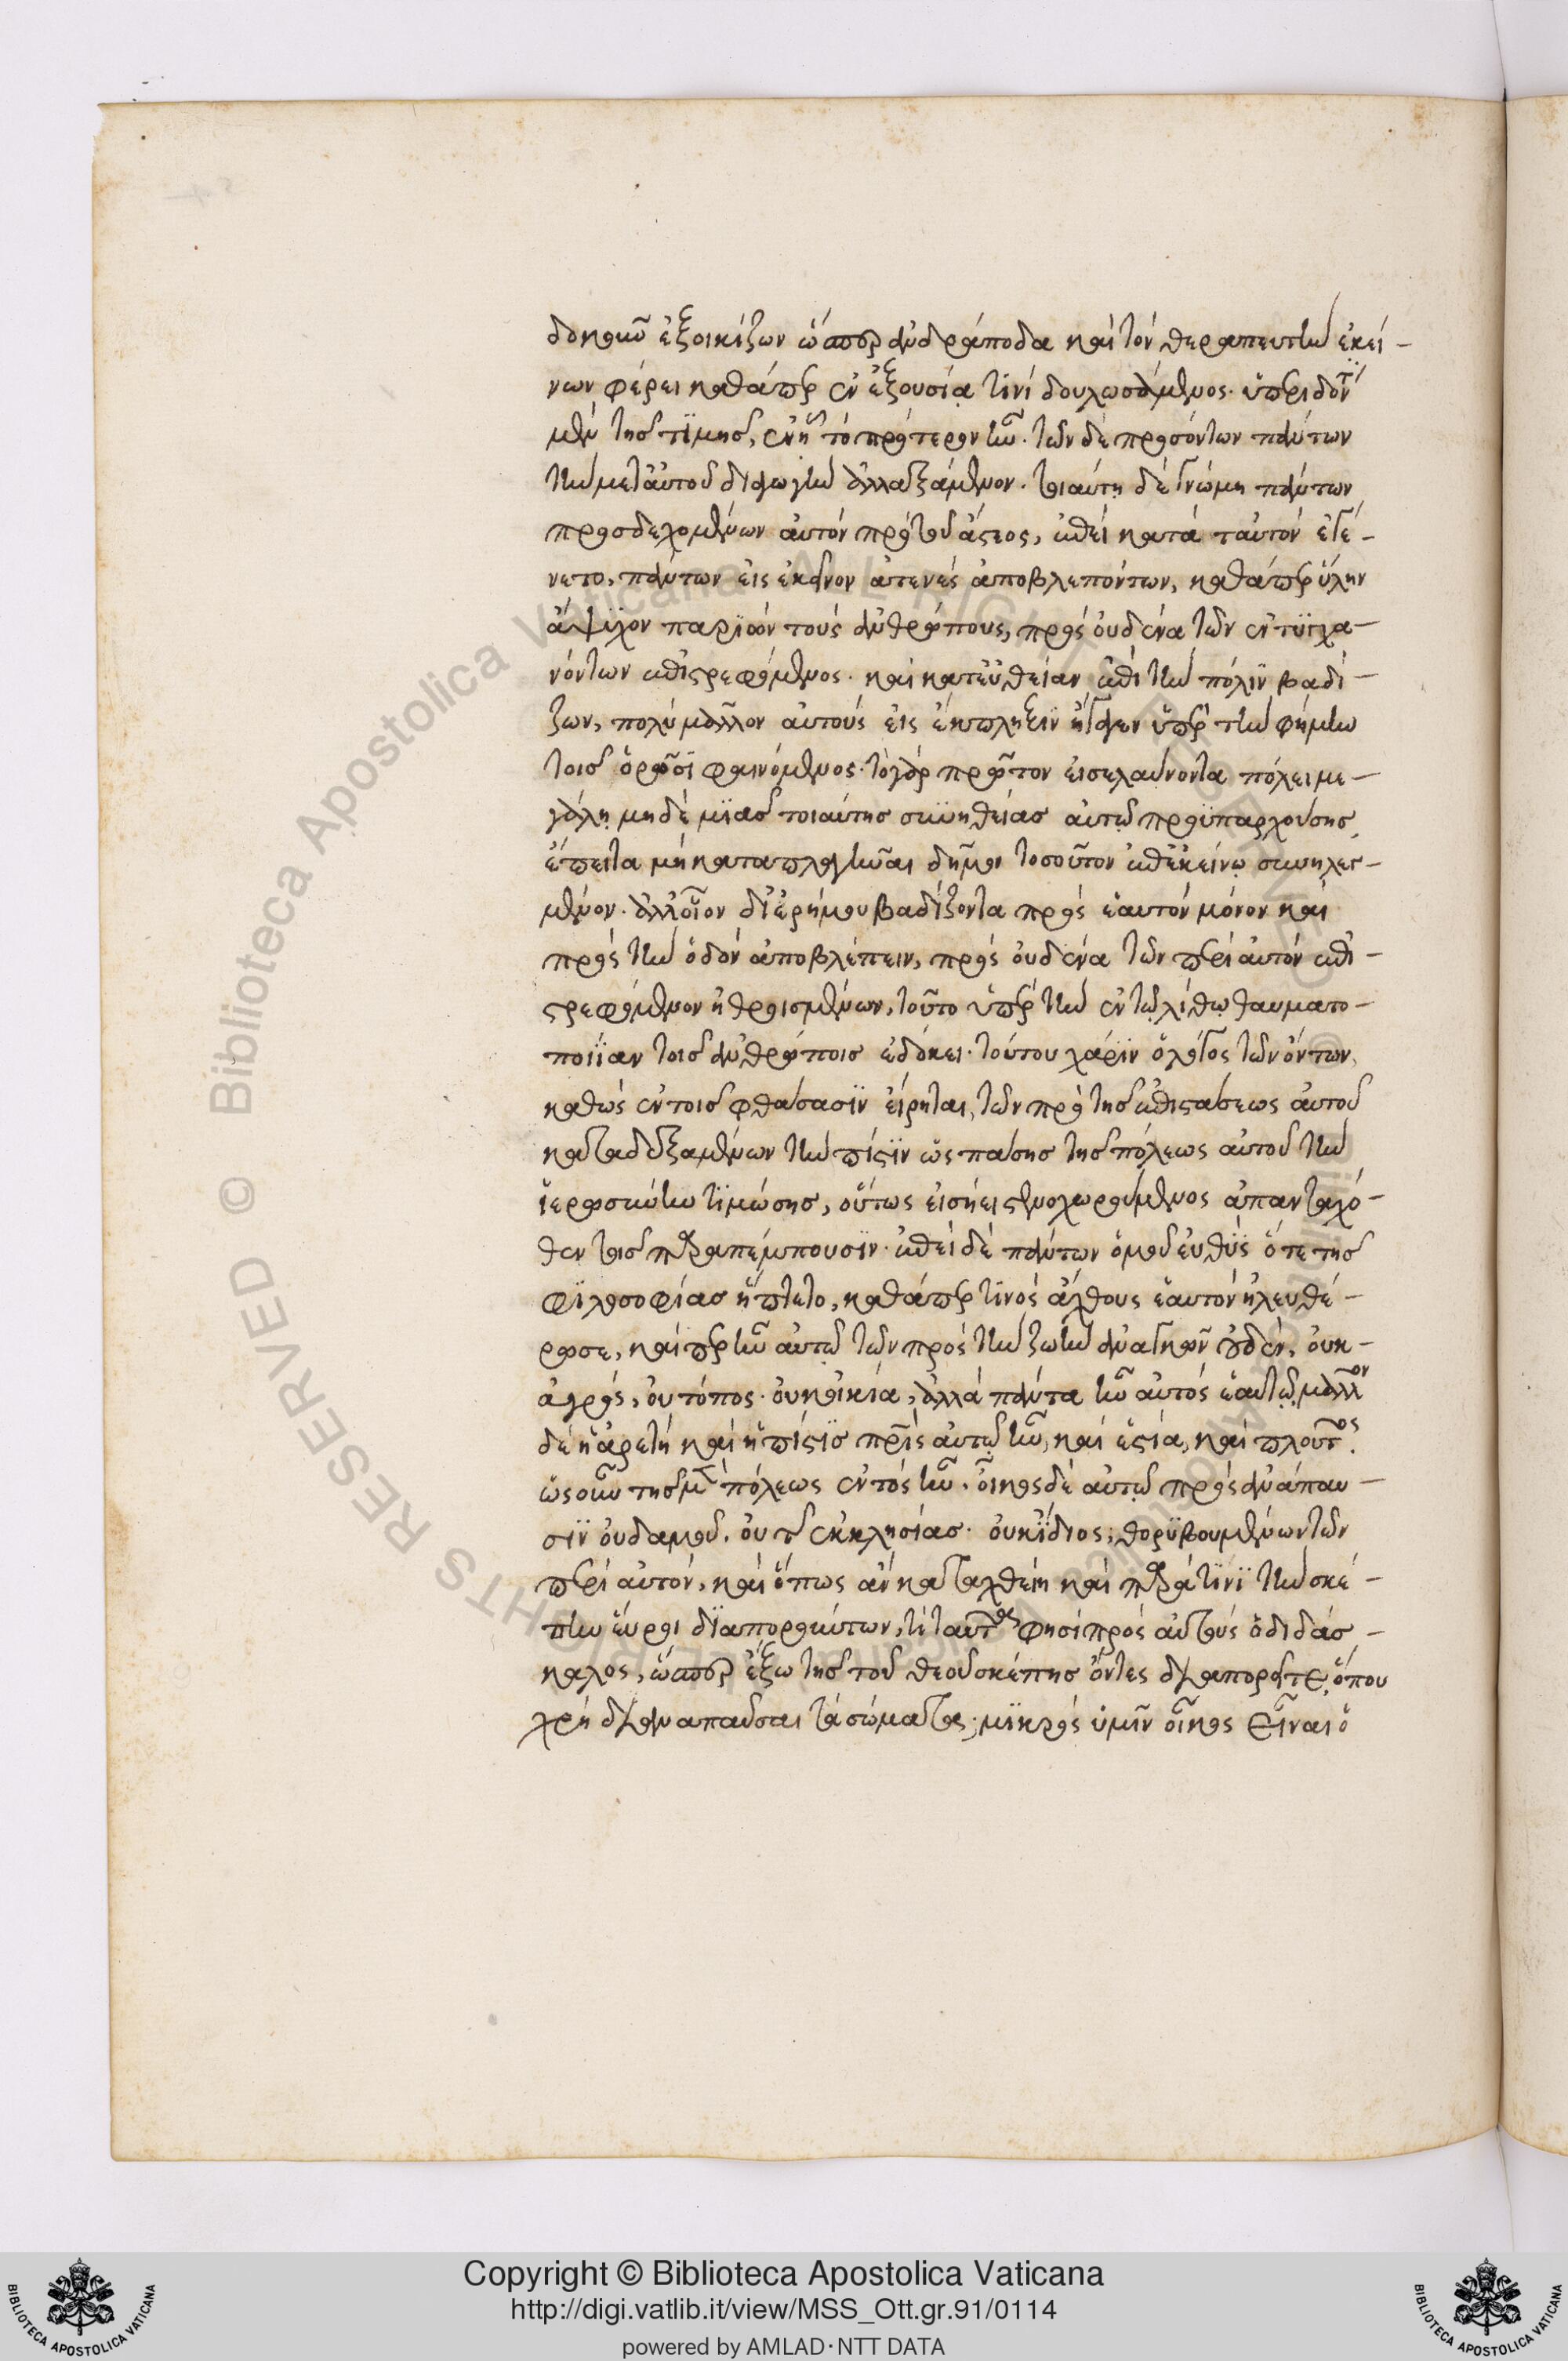 δοκῶν ἐξοικίζων ὥσπερ ἀνδράποδα καὶ τὸν θεραπευτὴν ἐκεί-
νων φέρει καθάπερ ἐν ἐξουσία τινὶ δουλωσάμενος. ὑπεριδόντι
μὲν τῆς τιμῆς, ἐν ᾗ τὸ πρότερον ἦν. τῶν δὲ προσόντων πάντων
τὴν μετ αὐτοῦ διαγωγὴν ἀλλαξάμενον. τοιαύτη δὲ γνώμη πάντων
προσδεχομένων αὐτὸν πρὸ τοῦ ἄστεος, ἐπεὶ κατὰ ταυτὸν ἐγέ-
νετο, πάντων εἰς ἐκεῖνον ἀτενὲς ἀποβλεπόντων, καθάπερ ὕλην
ἄψυχον παριὼν τοὺς ἀνθρώπους, πρὸς οὐδένα τῶν ἐντυγχα-
νόντων ἐπιστρεφόμενος. καὶ κατευθείαν ἐπὶ τὴν πόλιν βαδί-
ζων, πολὺ μᾶλλον αὐτοὺς εἰς ἔκπληξιν ἤγαγεν ὑπὲρ τὴν φήμην
τοῖς ὁρῶσι φαινόμενος. τὸ γὰρ πρῶτον εἰσελαύνοντα πόλει με-
γάλῃ μηδὲ μιᾶς τοιαύτης συνηθείας αὐτῷ προϋπαρχούσης,
ἔπειτα μὴ καταπλαγῆναι δήμου τοσοῦτον ἐπ ἐκείνῳ συνηλεγ-
μένον. ἀλλ οἷον δι ἐρήμου βαδίζοντα πρὸς ἑαυτὸν μόνον καὶ
πρὸς τὴν ὁδὸν ἀποβλέπειν, πρὸς οὐδένα τῶν περὶ αὐτὸν ἐπι-
στρεφόμενον ἠθροισμένων, τοῦτο ὑπὲρ τὴν ἐν τῷ λίθῳ θαυματο-
ποιίαν τοῖς ἀνθρώποις ἐδόκει. τούτου χάριν ὀλίγος τῶν ὄντων,
καθὼς ἐν τοῖς φθάσασιν εἴρηται, τῶν πρὸ τῆς ἐπιστάσεως αὐτοῦ
καταδεξαμένων τὴν πίστιν ὡς πάσης τῆς πόλεως αὐτοῦ τὴν
ἱερωσύνην τιμώσης, οὕτως εἰσῄει στενοχωρούμενος ἁπανταχό-
θεν τοῖς παραπέμπουσιν. ἐπεὶ δὲ πάντων ὁμοῦ εὐθὺς ὅτε τῆς
φιλοσοφίας ἥπτετο, καθάπερ τινὸς ἄχθους ἑαυτὸν ἠλευθέ-
ρωσε, καίπερ ἦν αὐτῷ τῶν πρὸς τὴν ζωὴν ἀναγκῶν οὐδέν, οὐκ-
ἀγρὸς, οὐ τόπος. οὐκ οἰκία, ἀλλὰ πάντα ἦν αὐτὸς ἑαυτῷ, μᾶλλον
δὲ ἡ ἀρετὴ καὶ ἡ πίστις πατρὶς αὐτῷ ἦν, καὶ ἑστία, καὶ πλοῦτος.
ὡς οὖν τῆς μὲν πόλεως ἐντὸς ἦν. οἶκος δὲ αὐτῷ πρὸς ἀνάπαυ-
σιν οὐδαμοῦ. οὐ τῆς ἐκκλησίας. οὐκ ἴδιος; θορυβουμένων τῶν
περὶ αὐτὸν, καὶ ὅπως ἂν καταχθείη καὶ παρά τινι τὴν σκέ-
πην εὕροι διαπορούντων, τί ταῦτα φησὶ πρὸς αὐτοὺς ὁ διδάσ-
καλος, ὥσπερ ἔξω τῆς τοῦ θεοῦ σκέπης ὄντες διαπορεῖτε, ὅπου
χρὴ διαναπαῦσαι τὰ σώματα; μικρὸς ὑμῖν οἶκος εἶναι ὁ
Copyright © Biblioteca Apostolica Vaticana
http://digi.vatlib.it/view/MSS_Ott.gr.91/0114
powered by AMLAD·NTT DATA